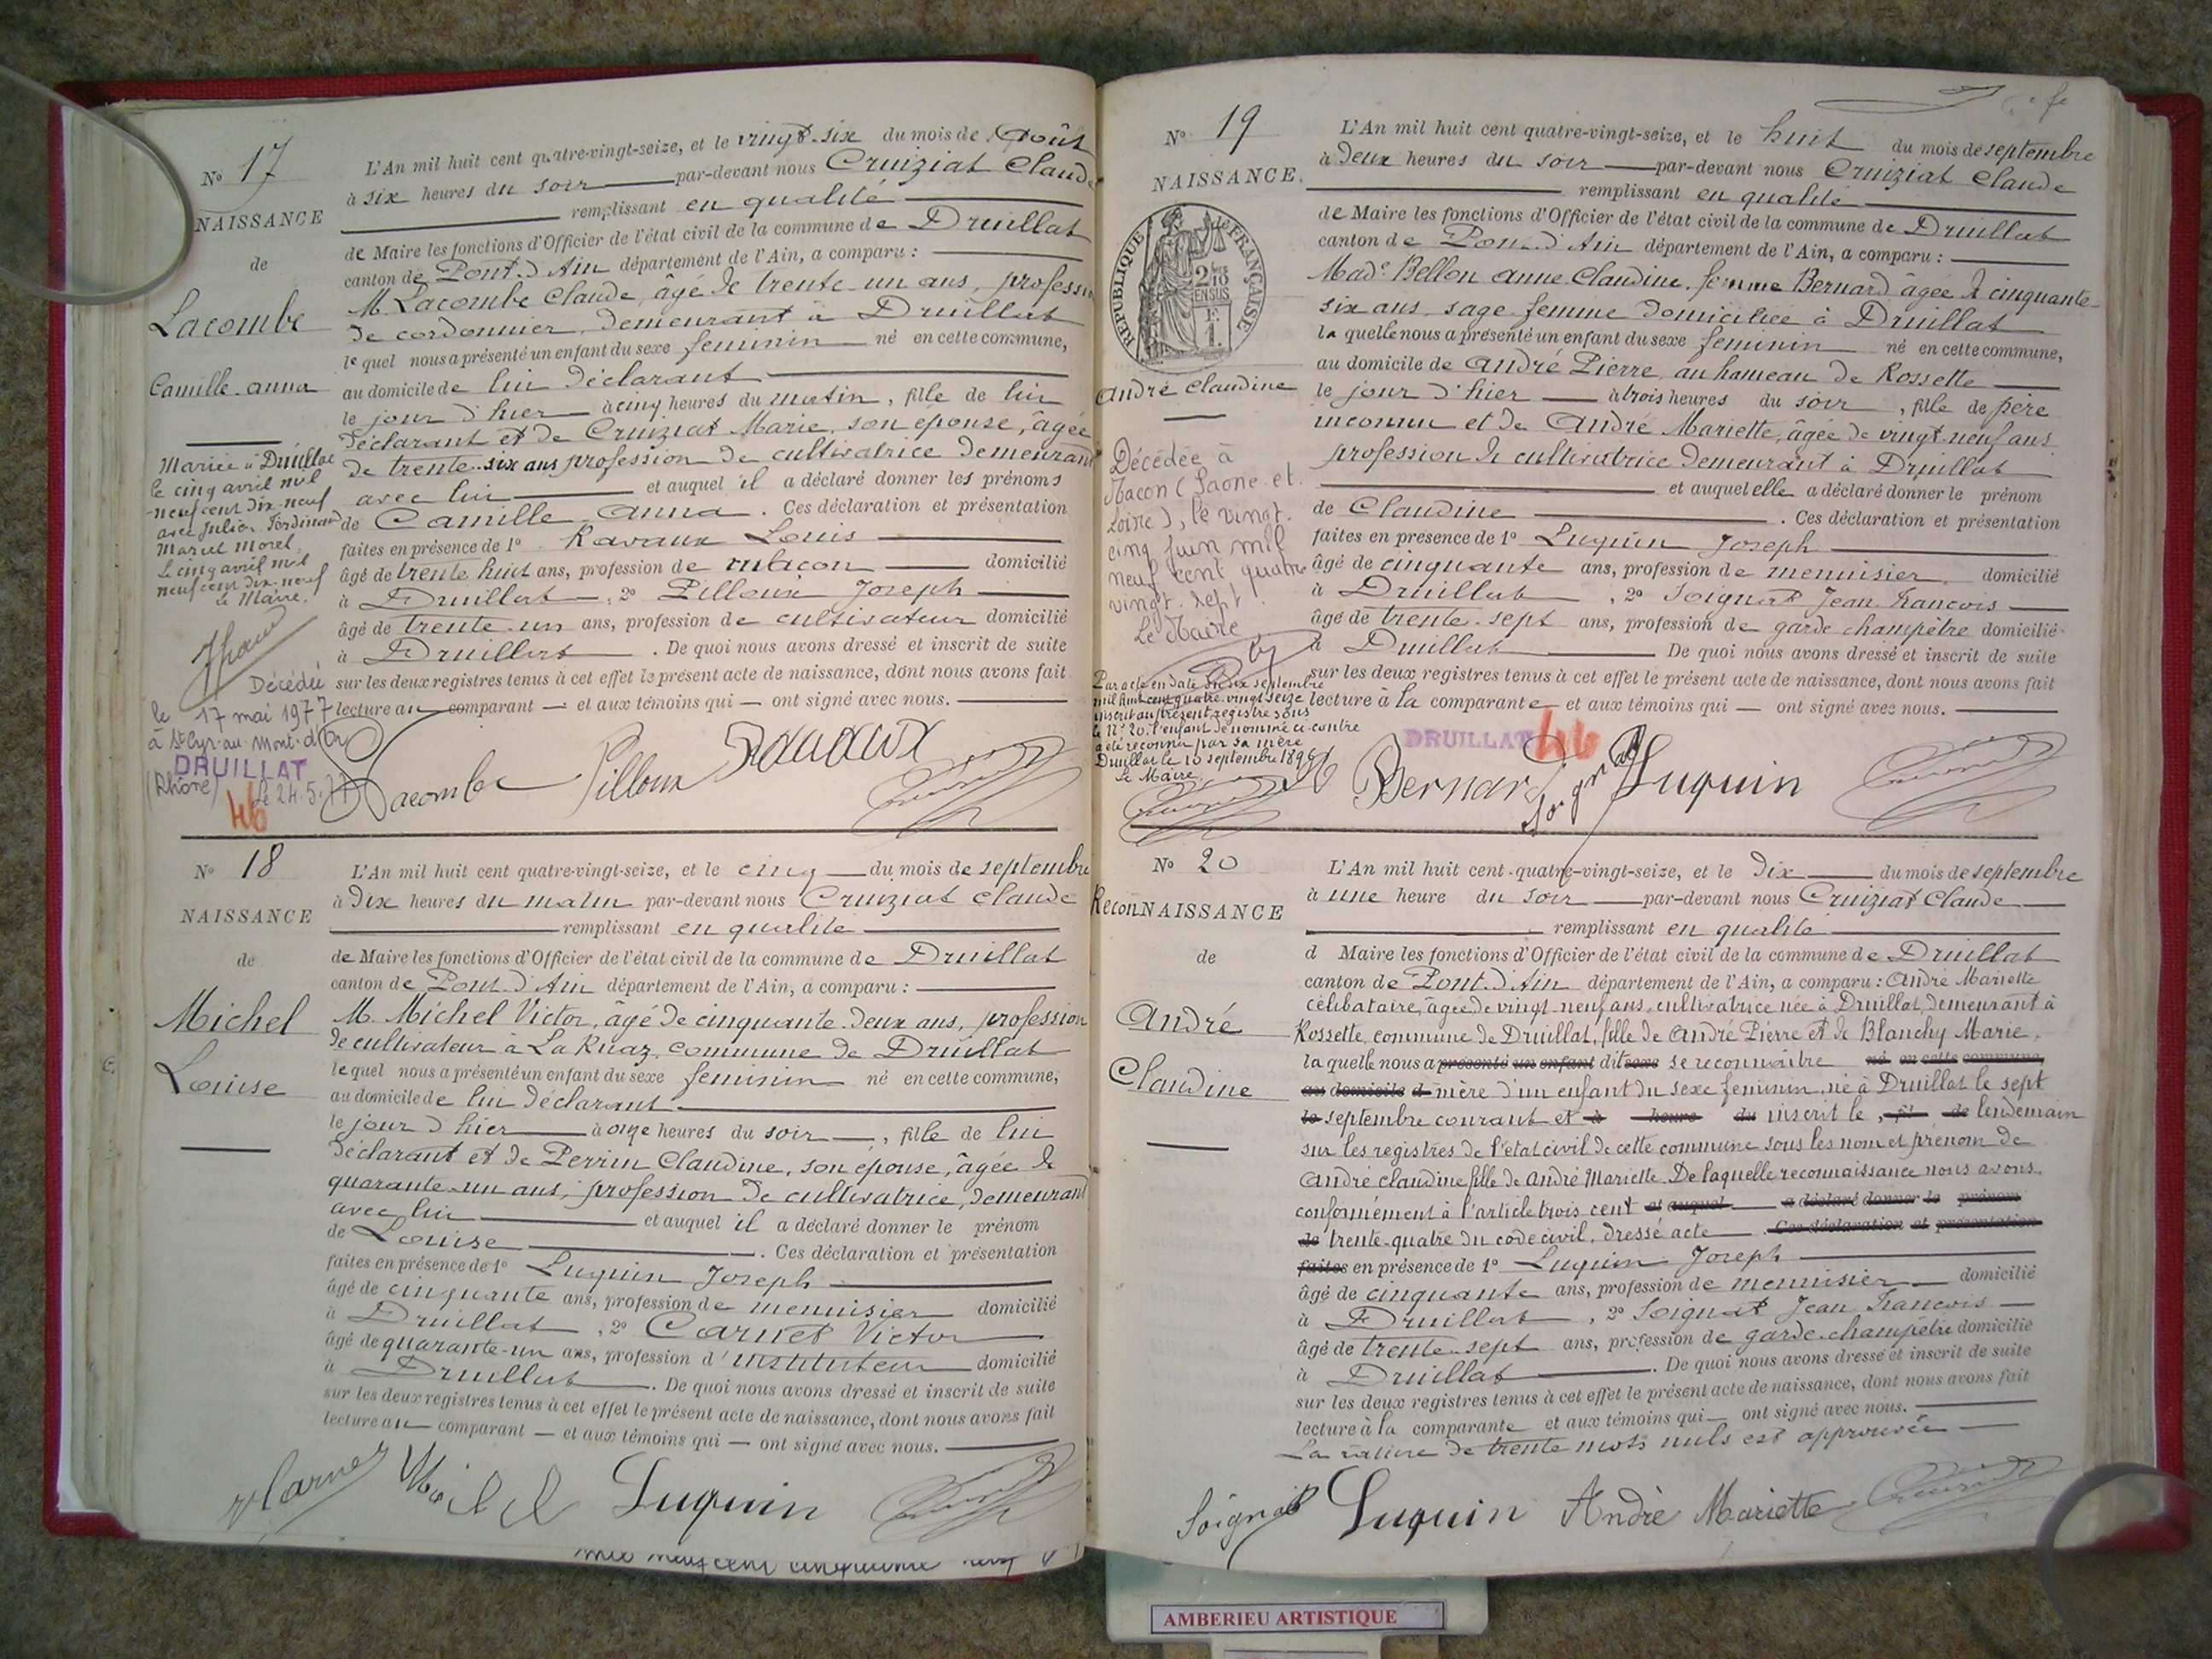 N° 17
NAISSANCE
de
Lacombe
Camille-anna
Mariée à Druillat
le cinq avril mil
neuf cent dix-neuf
avec Julien Ferdinand
Marcel Morel.
Le cinq avril mil
neuf cent dix-neuf
Le Maire.
Décédée
le 17 mai 1977
à St Cyr-au-Mont-d'Or
DRUILLAT
(Rhône) le 24.5.77
46
L'An mil huit cent quatre-vingt-seize, et le vingt-six du mois de Août
à six heures du soir par-devant nous Cruiziat Claude
remplissant en qualité
de Maire les fonctions d'Officier de l'état civil de la commune de Druillat
canton de Pont-d'Ain département de l'Ain, a comparu :
M. Lacombe Claude, âgé de trente-un ans, profession
de cordonnier, demeurant à Druillat
lequel nous a présenté un enfant du sexe feminin né en cette commune,
au domicile de lui déclarant
le jour d'hier à cinq heures du matin, fille de lui
déclarant et de Cruiziat Marie, son épouse, âgée
de trente-six ans profession de cultivatrice demeurant
avec lui et auquel il a déclaré donner les prénoms
de Camille-anna. Ces déclaration et présentation
faites en présence de 1° Ravaux Louis
âgé de trente huit ans, profession de domicilié
à Druillat, 2° Pilloux Joseph
âgé de trente-un ans, profession de cultivateur domicilié
à Druillat. De quoi nous avons dressé et inscrit de suite
sur les deux registres tenus à cet effet le présent acte de naissance, dont nous avons fait
lecture au comparant et aux témoins qui ont signé avec nous.
Lacombe Pilloux Ravaux
N° 18
NAISSANCE
de
Michel
Louise
L'An mil huit cent quatre-vingt-seize, et le cinq du mois de septembre
à dix heures du matin par-devant nous Cruiziat Claude
remplissant en qualité
de Maire les fonctions d'Officier de l'état civil de la commune de Druillat
canton de Pont-d'Ain département de l'Ain, a comparu :
M. Michel Victor, âgé de cinquante-deux ans, profession
de cultivateur à La Ruaz, commune de Druillat
lequel nous a présenté un enfant du sexe feminin né en cette commune,
au domicile de lui déclarant
le jour d'hier à onze heures du soir, fille de lui
déclarant et de Perrin Claudine, son épouse, âgée de
quarante-un ans, profession de cultivatrice, demeurant
avec lui et auquel il a déclaré donner le prénom
de Louise. Ces déclaration et présentation
faites en présence de 1° Luquin Joseph
âgé de cinquante ans, profession de menuisier domicilié
à Druillat, 2° Carnet Victor
âgé de quarante-un ans, profession d'instituteur domicilié
à Druillat. De quoi nous avons dressé et inscrit de suite
sur les deux registres tenus à cet effet le présent acte de naissance, dont nous avons fait
lecture au comparant et aux témoins qui ont signé avec nous.
VCarnet Michel Luquin
N° 19
NAISSANCE.
RÉPUBLIQUE FRANÇAISE
André Claudine
Décédée à
Macon (Saone-et-
Loire), le vingt-
cinq juin mil
neuf cent quatre
vingt-sept.
Le Maire
Par acte en date du dix septembre
mil huit cent quatre-vingt-seize
inscrit au présent registre sous
le N° 20. l'enfant dénommé ci-contre
a été reconnu par sa mère
Druillat le 10 septembre 1896
Le Maire
L'An mil huit cent quatre-vingt-seize, et le huit du mois de septembre
à deux heures du soir par-devant nous Cruiziat Claude
remplissant en qualité
de Maire les fonctions d'Officier de l'état civil de la commune de Druillat
canton de Pont-d'Ain département de l'Ain, a comparu :
Made Bellon anne Claudine, femme Bernard âgée de cinquante-
six ans, sage-femme domiciliée à Druillat
laquelle nous a présenté un enfant du sexe feminin né en cette commune,
au domicile de André Pierre, au hameau de Rossette
le jour d'hier à trois heures du soir, fille de père
inconnu et de André Mariette, âgée de vingt-neuf ans
profession de cultivatrice demeurant à Druillat
et auquel elle a déclaré donner le prénom
de Claudine. Ces déclaration et présentation
faites en présence de 1° Luquin Joseph
âgé de cinquante ans, profession de menuisier domicilié
à Druillat, 2° Soignat Jean François
âgé de trente-sept ans, profession de garde champêtre domicilié
à Druillat De quoi nous avons dressé et inscrit de suite
sur les deux registres tenus à cet effet le présent acte de naissance, dont nous avons fait
lecture à la comparante et aux témoins qui ont signé avec nous.
DRUILLAT 46
Bernard Soignat Luquin
N° 20
ReconNAISSANCE
de
André
Claudine
L'An mil huit cent quatre-vingt-seize, et le dix du mois de septembre
à une heure du soir par-devant nous Cruiziat Claude
remplissant en qualité
d Maire les fonctions d'Officier de l'état civil de la commune de Druillat
canton de Pont-d'Ain département de l'Ain, a comparu : André Mariette
célibataire, âgée de vingt-neuf ans, cultivatrice née à Druillat, demeurant à
Rossette, commune de Druillat, fille de André Pierre et de Blanchy Marie.
laquelle nous a présenté un enfant dit sexe se reconnaître né en cette commune,
au domicile d mère d'un enfant du sexe feminin, né à Druillat le sept
le septembre courant et à heure du inscrit le, fil de lendemain
sur les registres de l'état civil de cette commune sous les nom et prénom de
André Claudine fille de André Mariette. De laquelle reconnaissance nous avons,
conformément à l'article trois cent et auquel a déclaré donner le prénom
de trente-quatre du code civil, dressé acte. Ces déclaration et présentation
faites en présence de 1° Luquin Joseph
âgé de cinquante ans, profession de menuisier domicilié
à Druillat, 2° Soignat Jean François
âgé de trente-sept ans, profession de garde-champêtre domicilié
à Druillat. De quoi nous avons dressé et inscrit de suite
sur les deux registres tenus à cet effet le présent acte de naissance, dont nous avons fait
lecture à la comparante et aux témoins qui ont signé avec nous.
La rature de trente mots nuls est approuvée
Soignat Luquin Andrè Mariette
AMBERIEU ARTISTIQUE